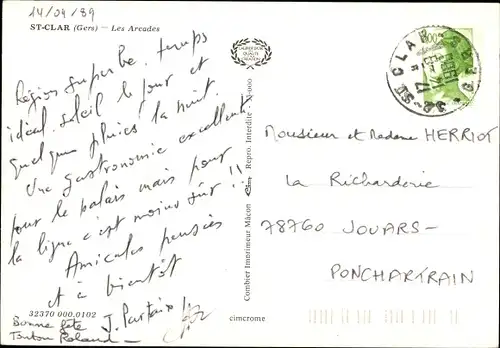 14/04/89
ST-CLAR (Gers) — Les Arcades
Région superbe, temps
idéal, soleil le jour et
quelques pluies la nuit.
Une gastronomie excellente
pour le palais mais pour
la ligne c'est moins sûr !!
Amicales pensées
et à bientôt
Bonne fête
Tonton Roland —
32370 000.0102
cimcrome
Combier Imprimeur Mâcon
Repro. Interdite
ST CLAR
Monsieur et Madame HERRIOT
La Richarderie
78760 JOUARS-
PONCHARTRAIN